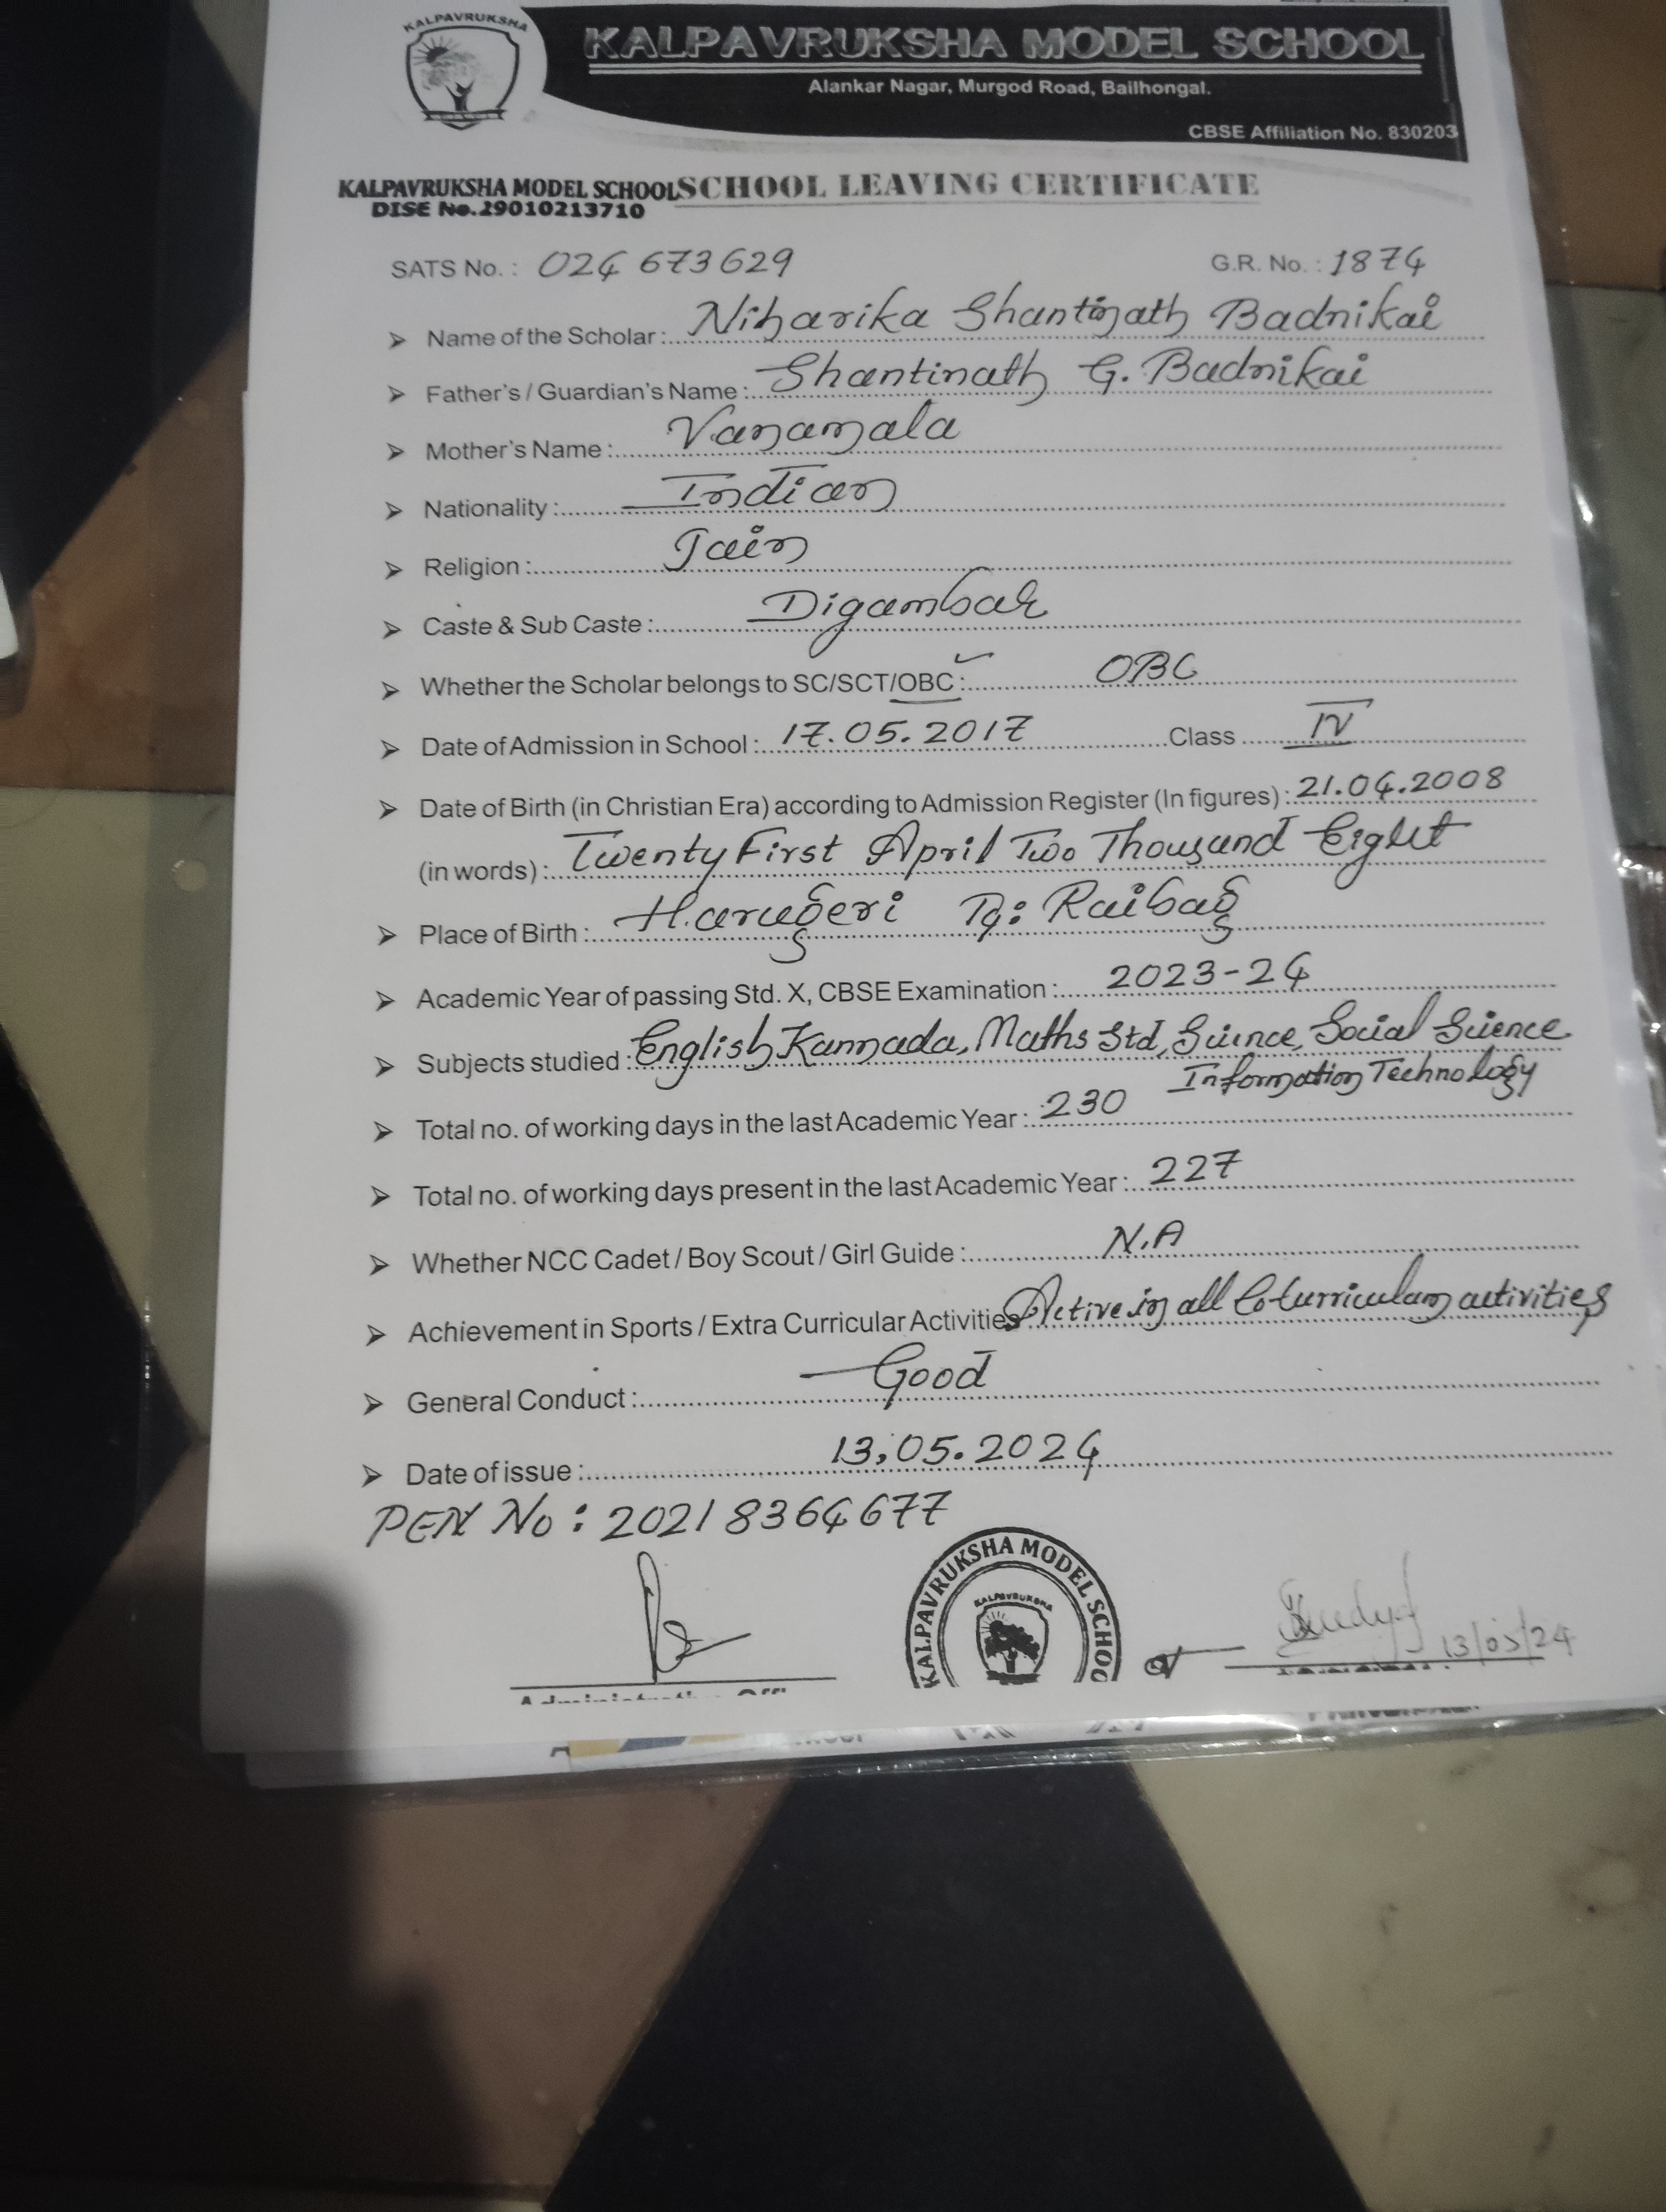 KALPAVRUKSHA
KALPAVRUKSHA MODEL SCHOOL
Alankar Nagar, Murgod Road, Bailhongal.
CBSE Affiliation No. 830203
KALPAVRUKSHA MODEL SCHOOL SCHOOL LEAVING CERTIFICATE
DISE No.29010213710
SATS No. : 024 673629 G.R. No. : 1874
Name of the Scholar : Niharika Shantinath Badnikai
Father's / Guardian's Name : Shantinath G. Badnikai
Mother's Name : Vanamala
Nationality : Indian
Religion : Jain
Caste & Sub Caste : Digambar
Whether the Scholar belongs to SC/SCT/OBC : OBC
Date of Admission in School : 17.05.2017 Class IV
Date of Birth (in Christian Era) according to Admission Register (In figures) : 21.04.2008
(in words) : Twenty First April Two Thousand Eight
Place of Birth : Harugeri Tq: Raibag
Academic Year of passing Std. X, CBSE Examination : 2023-24
Subjects studied : English, Kannada, Maths Std, Science, Social Science
Information Technology
Total no. of working days in the last Academic Year : 230
Total no. of working days present in the last Academic Year : 227
Whether NCC Cadet / Boy Scout / Girl Guide : N.A
Achievement in Sports / Extra Curricular Activities Active in all Co-curricular activities
General Conduct : Good
Date of issue : 13.05.2024
PEN No : 20218364677
KALPAVRUKSHA MODEL SCHOO
KALPAVRUKSHA
13/05/24